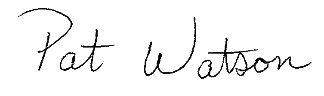 Pat Watson